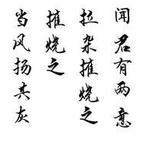 闻君有两意
拉杂摧烧之
摧烧之
当风扬其灰